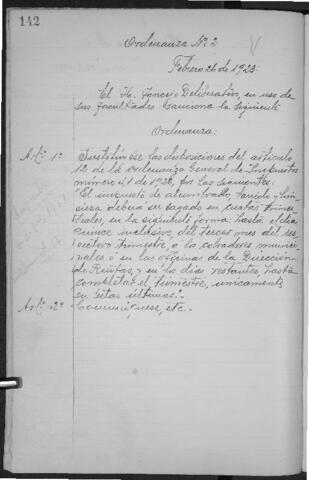 142
Ordenanza Nº 2
Febrero 26 de 1923
El H. Concejo Deliberativo, en uso de
sus facultades sanciona la siguiente
Ordenanza:
Artº. 1º Sustitúyese las disposiciones del artículo
12 de la ordenanza General de Impuestos
número 1 de 1923, por las siguientes:
"El impuesto de alumbrado, barrido y lim
pieza deberá ser pagado en cuatro trimes
trales, en la siguiente forma: hasta el día
quince inclusive, del tercer mes del res
pectivo trimestre, a los cobradores munici
pales o en las oficinas de la Dirección
de Rentas, y en los días restantes, hasta
completar el trimestre, unicamente
en estas últimas".
Artº. 2º Comuníquese, etc.